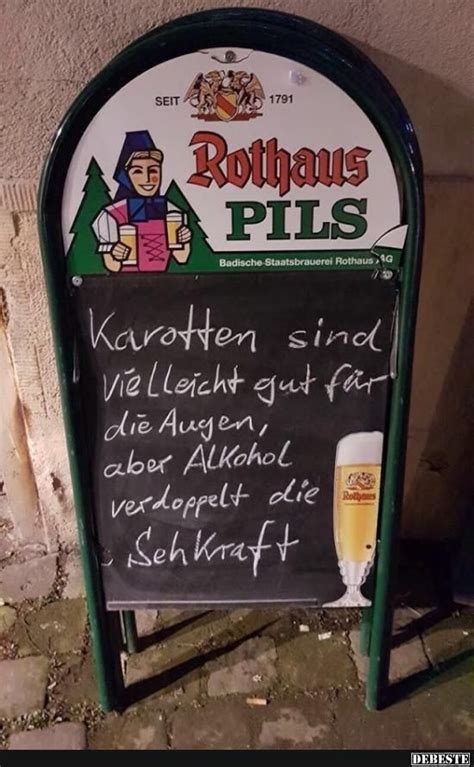 SEIT 1791
Rothaus
PILS
Badische Staatsbrauerei Rothaus AG
Karotten sind
vielleicht gut für
die Augen,
aber Alkohol
verdoppelt die
Sehkraft
Rothaus
DEBESTE